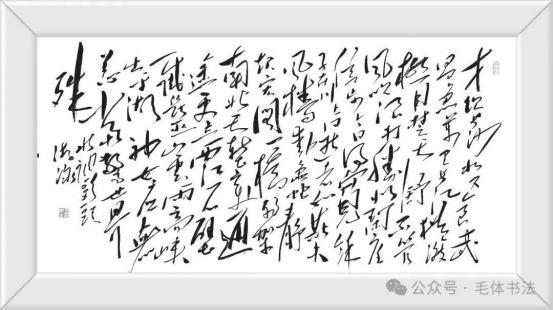 才饮长沙水又食武
昌鱼万里长江横渡
极目楚天舒不管
风吹浪打胜似闲庭
信步今日得宽馀
子在川上曰逝者如斯夫
风樯动龟蛇静
起宏图一桥飞架
南北天堑变通
途更立西江石壁
截断巫山云雨高峡
出平湖神女应无
恙当惊世界
殊
水调歌头
游泳
公众号·毛体书法